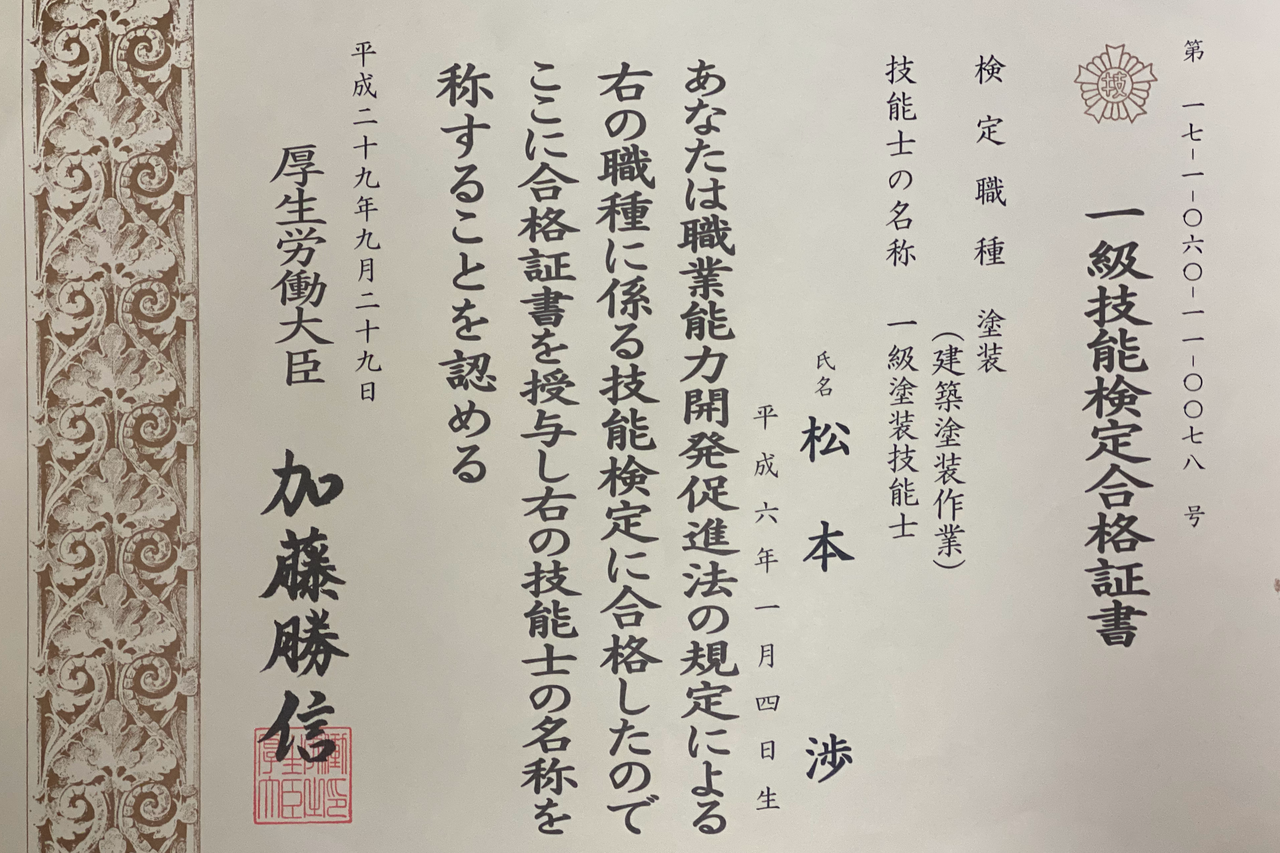 第 一七-一-〇六〇-一一-〇〇七八 号
技
一級技能検定合格証書
検定職種 塗装
(建築塗装作業)
技能士の名称 一級塗装技能士
氏名 松本 渉
平成六年一月四日生
あなたは職業能力開発促進法の規定による
右の職種に係る技能検定に合格したので
ここに合格証書を授与し右の技能士の名称を
称することを認める
平成二十九年九月二十九日
厚生労働大臣 加藤勝信